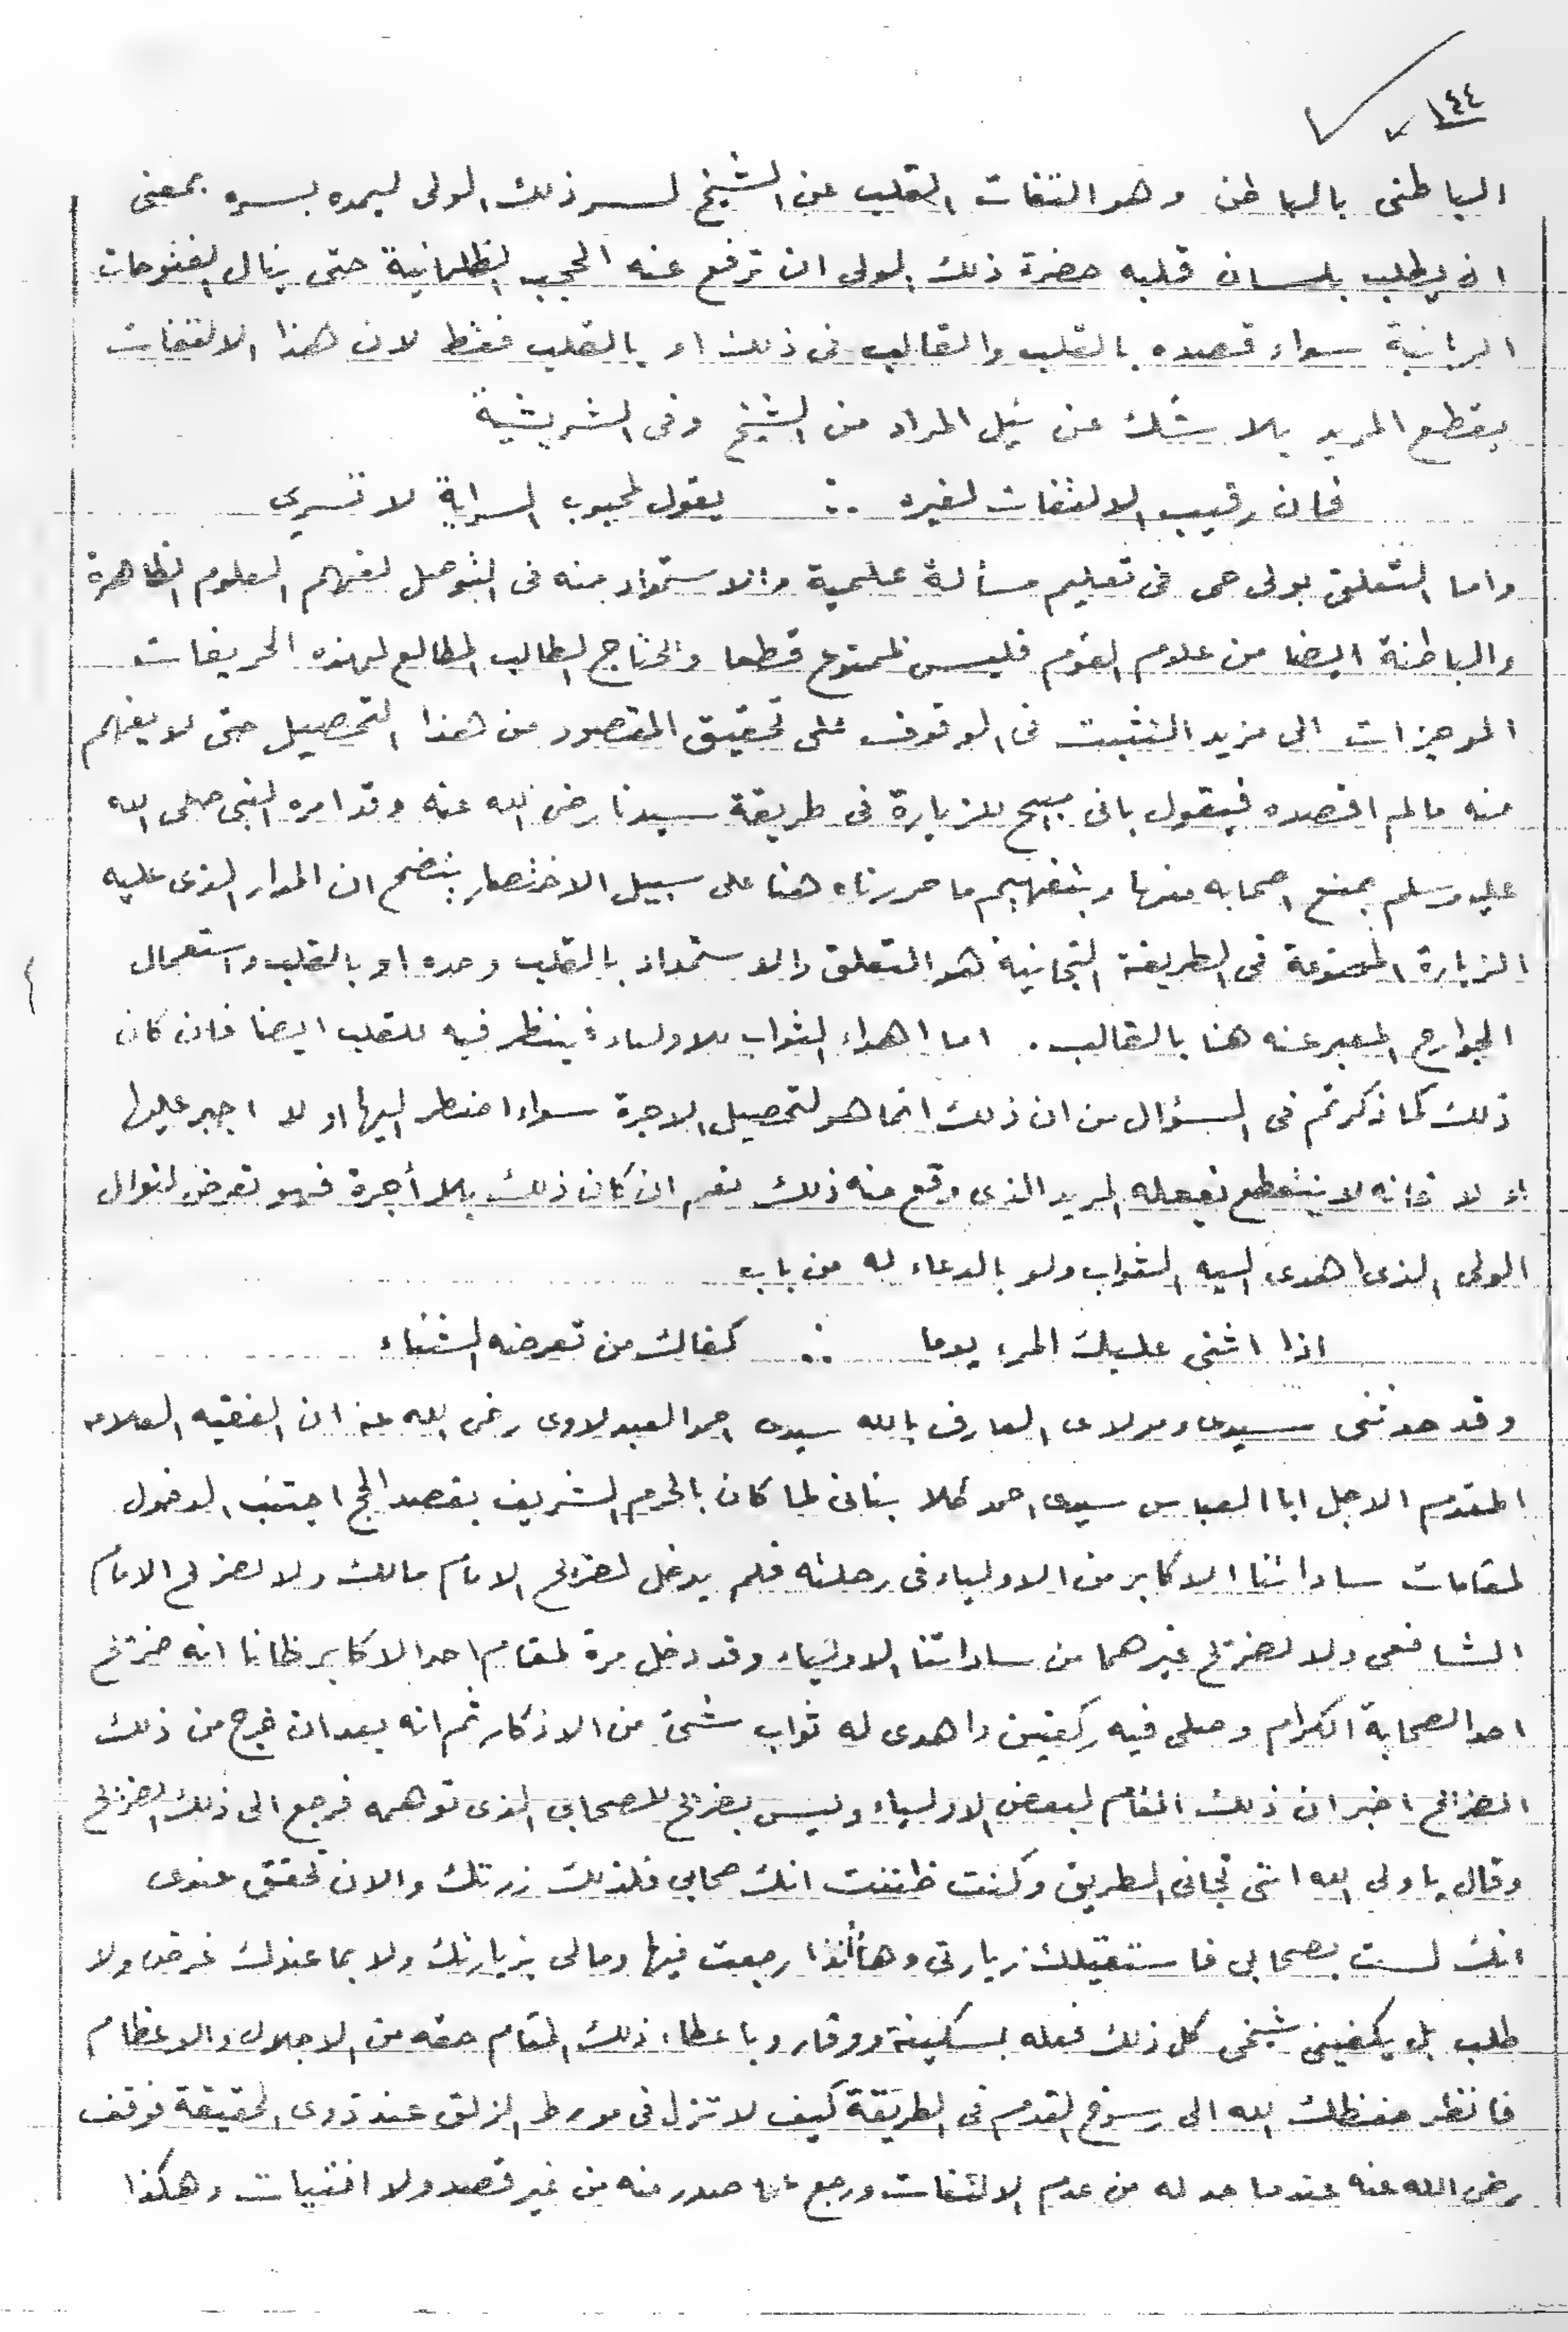 ١٤٤
الباطنى بالباطن وهو التفات القلب عن الشيخ لسر ذلك الولى ليمده بسره بمعنى
ان يطلب بلسان قلبه حضرة ذلك الولى ان ترفع عنه الحجب الظلمانية حتى ينال الفتوحات
الربانية سواء قصده بالقلب والقالب فى ذلك او بالقلب فقط لان هذا الالتفات
يقطع المريد بلا شك عن نيل المراد من الشيخ وفى الشريشية
فان رقيب الالتفات لغيره ∴ يقول لمحبوب السراية لا تسرى
واما التعلق بولى حى فى تعليم مسألة علمية والاستمداد منه فى التوصل لفهم العلوم الظاهرة
والباطنة ايضا من علوم القوم فليس بممنوع قطعا واحتاج الطالب المطالع لهذه الحريفات
الموجزات الى مزيد التثبت فى الوقوف على تحقيق المقصود من هذا التحصيل حتى لا يفهم
منه مالم اقصده فيقول بانى مبيح للزيارة فى طريقة سيدنا رضى الله عنه وقد امره النبى صلى الله
عليه وسلم بمنع اصحابه منها وبتفهيم ما حررناه هنا على سبيل الاختصار يتضح ان المدار الذى عليه
الزيارة الممنوعة فى الطريقة التجانية هو التعلق والاستمداد بالقلب وحده او بالقلب واستعمال
الجوارح المعبر عنه هنا بالقالب . اما اهداء الثواب للاولياء فينظر فيه للقلب ايضا فان كان
ذلك كما ذكرتم فى السؤال من ان ذلك انما هو لتحصيل الاجرة سواء اضطر اليها او لا اجبر عليها
او لا فانه لا ينقطع بفعله المريد الذى وقع منه ذلك نعم ان كان ذلك بلا أجرة فهو تعرض لنوال
الولى الذى اهدى اليه الثواب ولو بالدعاء له من باب
اذا اثنى عليك المرء يوما ∴ كفاك من تعرضه الثناء
وقد حدثنى سيدى ومولاى العارف بالله سيدى احمد العبدلاوى رضى الله عنه ان الفقيه العلامه
المقدم الاجل ابا العباس سيدى احمد كلا بنانى لما كان بالحرم الشريف بقصد الحج اجتنب الدخول
لمقامات ساداتنا الاكابر من الاولياء فى رحلته فلم يدخل لضريح الامام مالك ولا لضريح الامام
الشافعى ولا لضريح غيرهما من ساداتنا الاولياء وقد دخل مرة لمقام احد الاكابر ظانا انه ضريح
احد الصحابة الكرام وصلى فيه ركعتين واهدى له ثواب شئ من الاذكار ثم انه بعد ان خرج من ذلك
الضريح اخبر ان ذلك المقام لبعض الاولياء وليس بضريح للصحابى الذى توهمه فرجع الى ذلك الضريح
وقال يا ولى الله اننى تجانى الطريق وكنت ظننت انك صحابى فلذلك زرتك والان تحقق عندى
انك لست بصحابى فاستقيلك زيارتى وهأنذا رجعت فيها ومالى بزيارتك ولا بما عندك غرض ولا
طلب بل يكفينى شيخى كل ذلك فعله بسكينة ووقار وباعطاء ذلك المقام حقه من الاجلال والاعظام
فانظر حفظك الله الى رسوخ القدم فى الطريقة كيف لا تزل فى مورط الزلق عند ذوى الحقيقة فوقف
رضى الله عنه عندما حد له من عدم الالتفات ورجع عما صدر منه من غير قصد ولا افتيات وهكذا